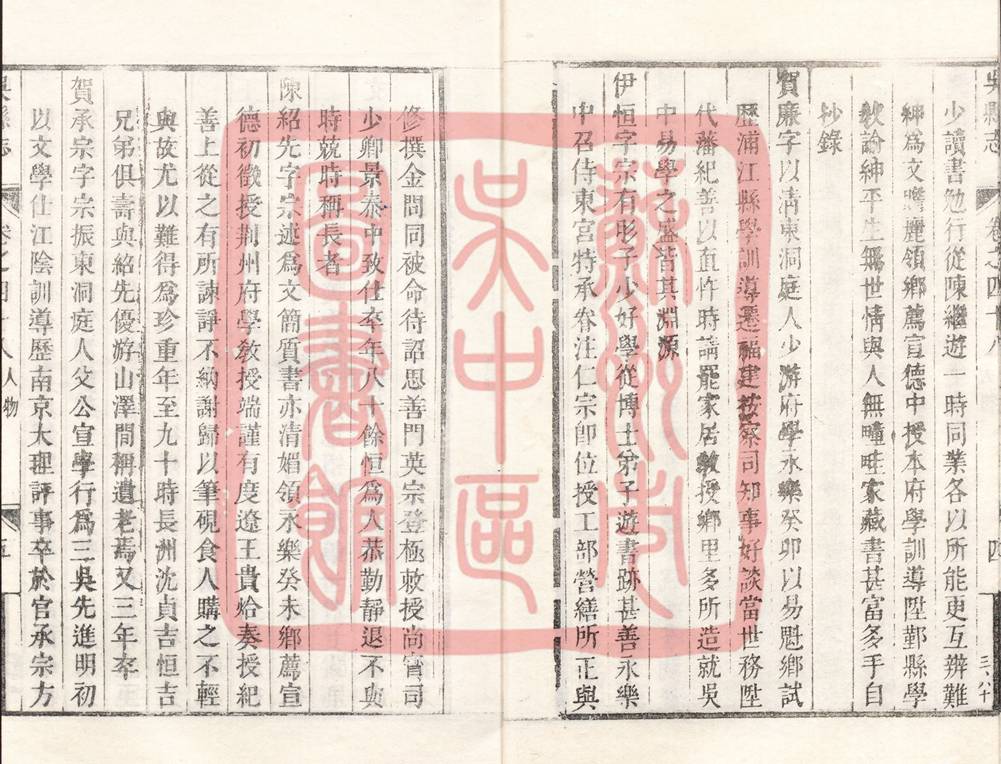 吳縣志
卷之四十八
四
少讀書勉行從陳繼遊一時同業各以所能更互辨難
紳為文贍麗領鄉薦宣德中授本府學訓導陞鄞縣學
教諭紳平生無世情與人無畦家藏書甚富多手自
抄錄
賀廉字以清東洞庭人少游府學永樂癸卯以易魁鄉試
歷浦江縣學訓導遷福建按察司知事好談當世務陞
代藩紀善以直忤時請罷家居教授鄉里多所造就吳
中易學之盛皆其淵源
伊恒字宗有彤子少好學從博士弟子遊書跡甚善永樂
中召侍東宮特承眷注仁宗卽位授工部營繕所正與
修撰金問同被命待詔思善門英宗登極敕授尚寳司
少卿景泰中致仕卒年八十餘恒為人恭勤靜退不與
時兢時稱長者
陳紹先字宗述為文簡質書亦清媚領永樂癸未鄉薦宣
德初徵授荆州府學敎授端謹有度遼王貴烚奏授紀
善上從之有所諫諍不納謝歸以筆硯食人購之不輕
與故尤以難得為珍重年至九十時長洲沈貞吉恒吉
兄弟俱壽與紹先優游山澤間稱遺老焉又三年卒
賀承宗字宗振東洞庭人父公宣學行為三吳先進明初
以文學仕江陰訓導歷南京大理評事卒於官承宗方
吳縣志
卷之四十八
人物
五
蘇州市
吳中區
圖書館